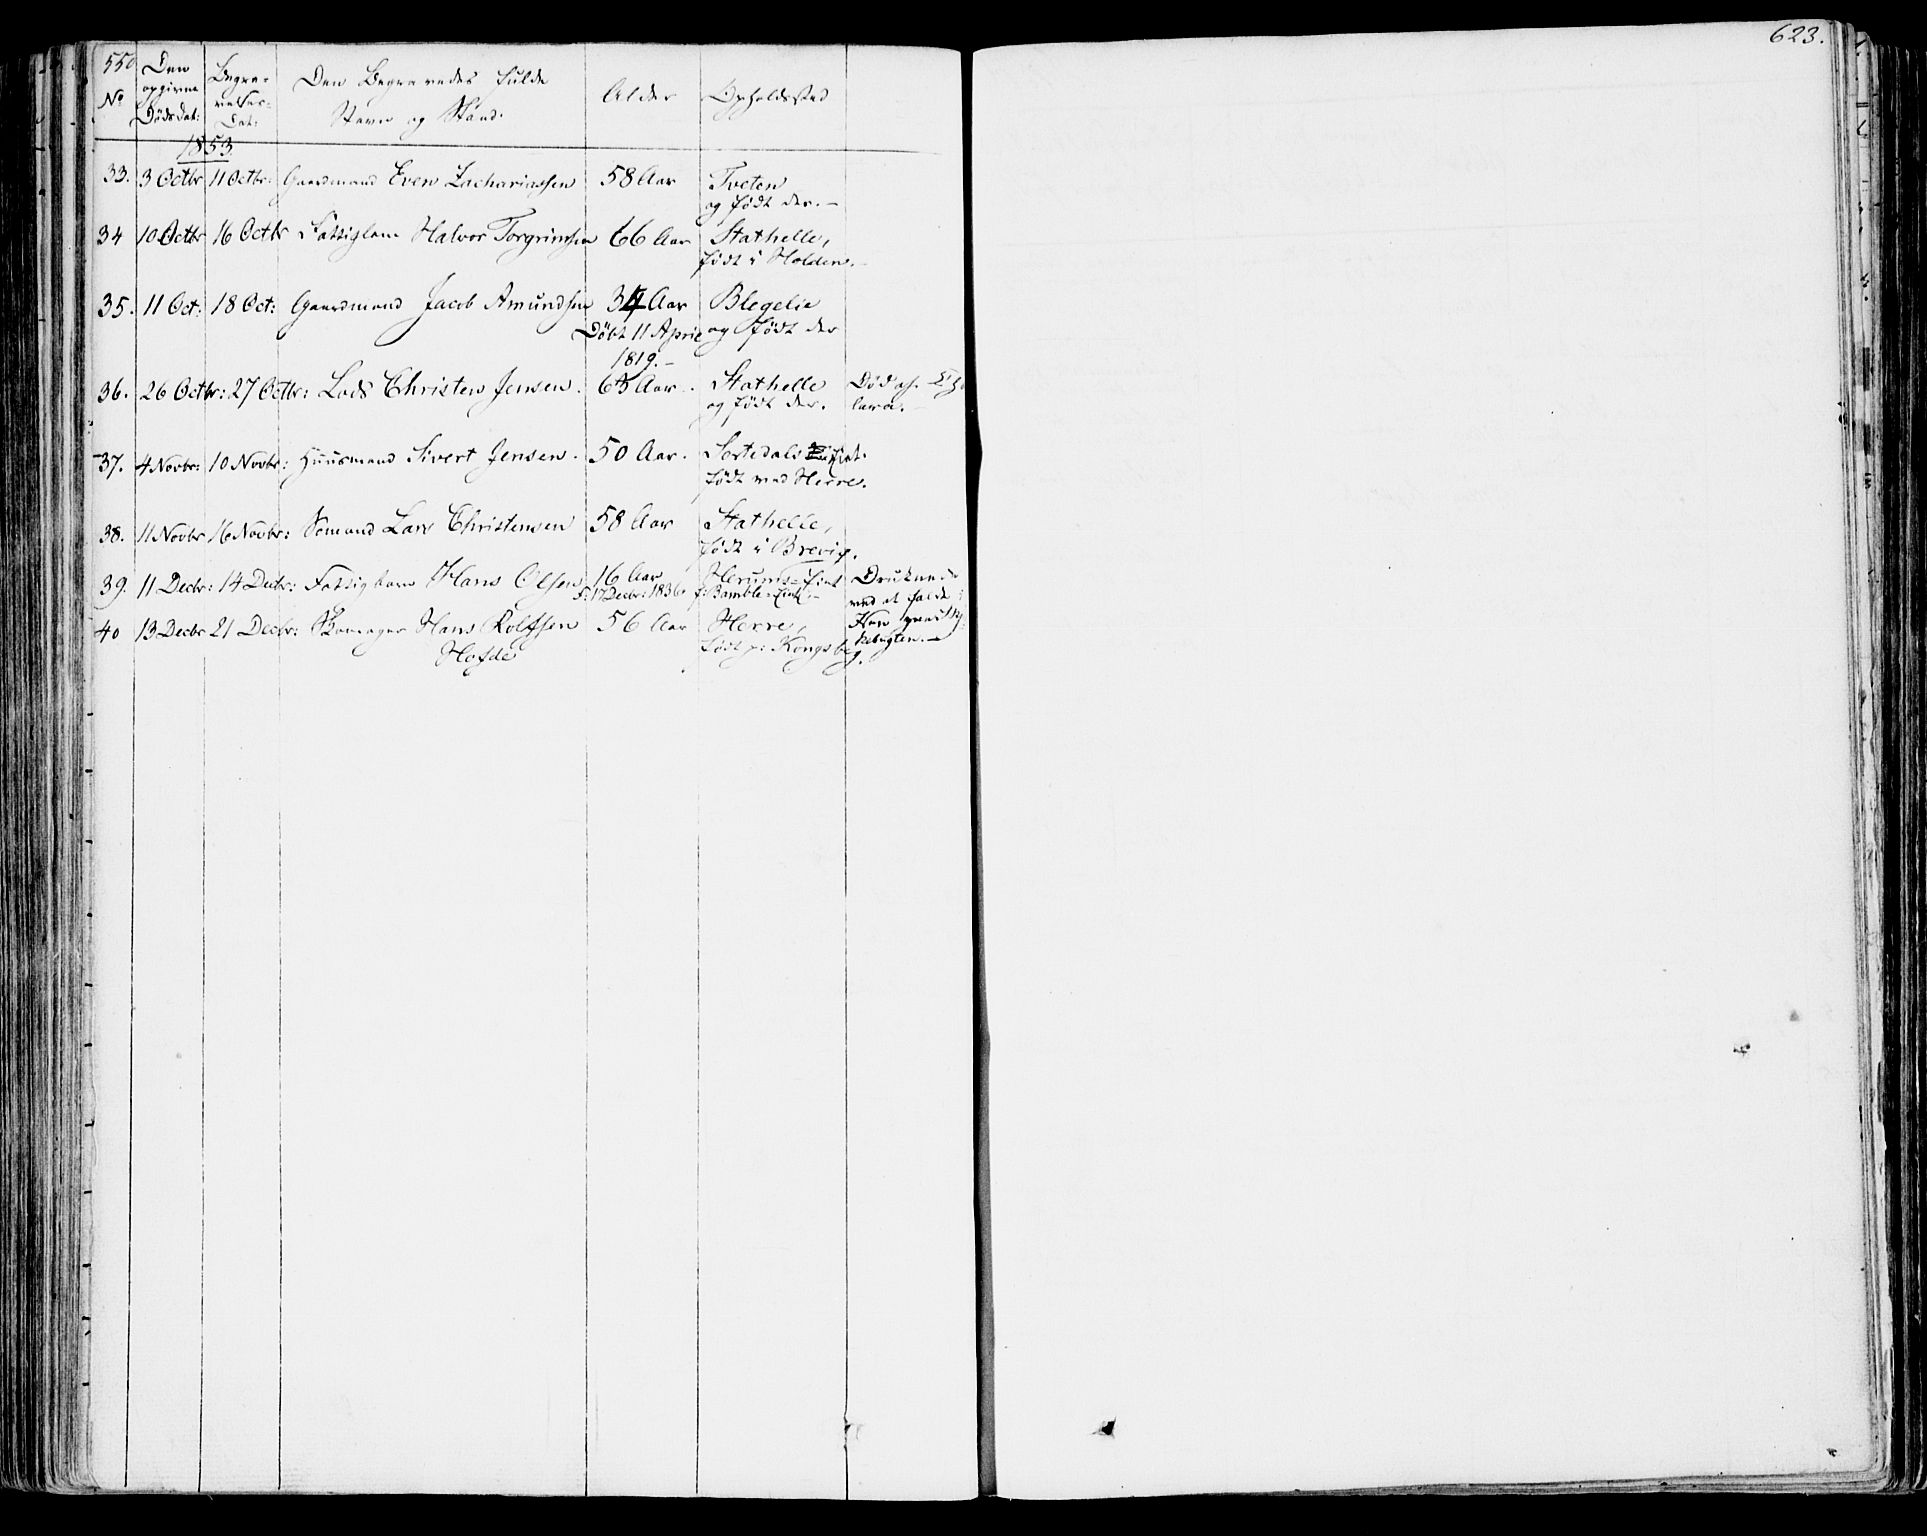 550
No
Den opgivne Dødsdat:
Begravelses-Dat:
Den Begravedes fulde Navn og Stand.
Alder
Opholdssted
623.
1853.
33. 3 Octbr 11 Octbr: Gaardmand Even Zachariassen 58 Aar Tveten
og født der. –
34 10 Octbr 16 Octbr Fattiglem Halvor Torgrimsen 66 Aar Stathelle,
født i Holden. –
35. 11 Oct: 18 Oct: Gaardmand Jacob Amundsen 34 Aar Blegelie
Døbt 11 April og født der
1819. –
36. 26 Octbr: 27 Octbr: Lods Christen Jensen. Aar. Stathelle Død af Cho
og født der. lera. –
37. 4 Novbr: 10 Novbr: Huusmand Sivert Jensen. 50 Aar. Sortedals Eiet.
født ved Herre.
38. 11 Novbr 16 Novbr: Sømand Lars Christensen 58 Aar Stathelle,
født i Brevig.
39. 11 Decbr: 14 Decbr: Fattigbarn Hans Olsen 16 Aar Herums-Eiet Druknede
f: 17 Decbr: 1836. f: Bamble-Eiet. – ved at falde i
40 13 Decbr 21 Decbr: Skomager Hans Rolfsen 56 Aar Herre,
Hofde født p: Kongsbe
g.